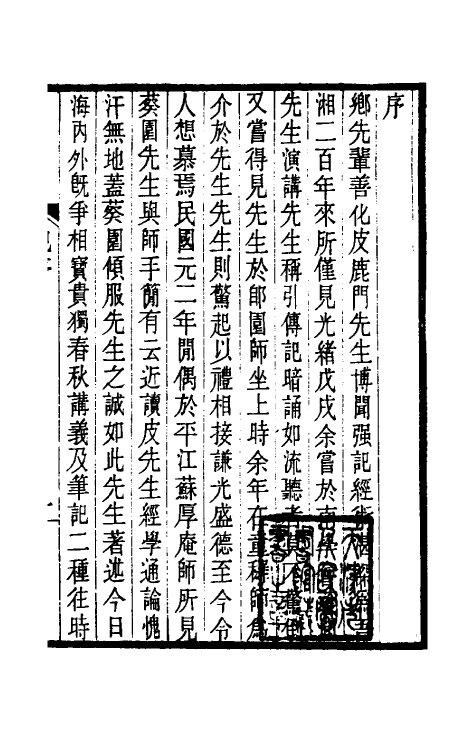 序
鄉先輩善化皮鹿門先生博聞强記經術湛深為吾
湘二百年來所僅見光緒戊戌余嘗於南學
先生演講先生稱引傳記暗誦如流聽者莫不驚倒
又嘗得見先生於郎園師坐上時余年在童稺師為
介於先生先生則驚起以禮相接謙光盛德至今令
人想慕焉民國元二年閒偶於平江蘇厚庵師所見
葵園先生與師手簡有云近讀皮先生經學通論愧
汗無地蓋葵園傾服先生之誠如此先生著述今日
海内外旣爭相寶貴獨春秋講義及筆記二種往時